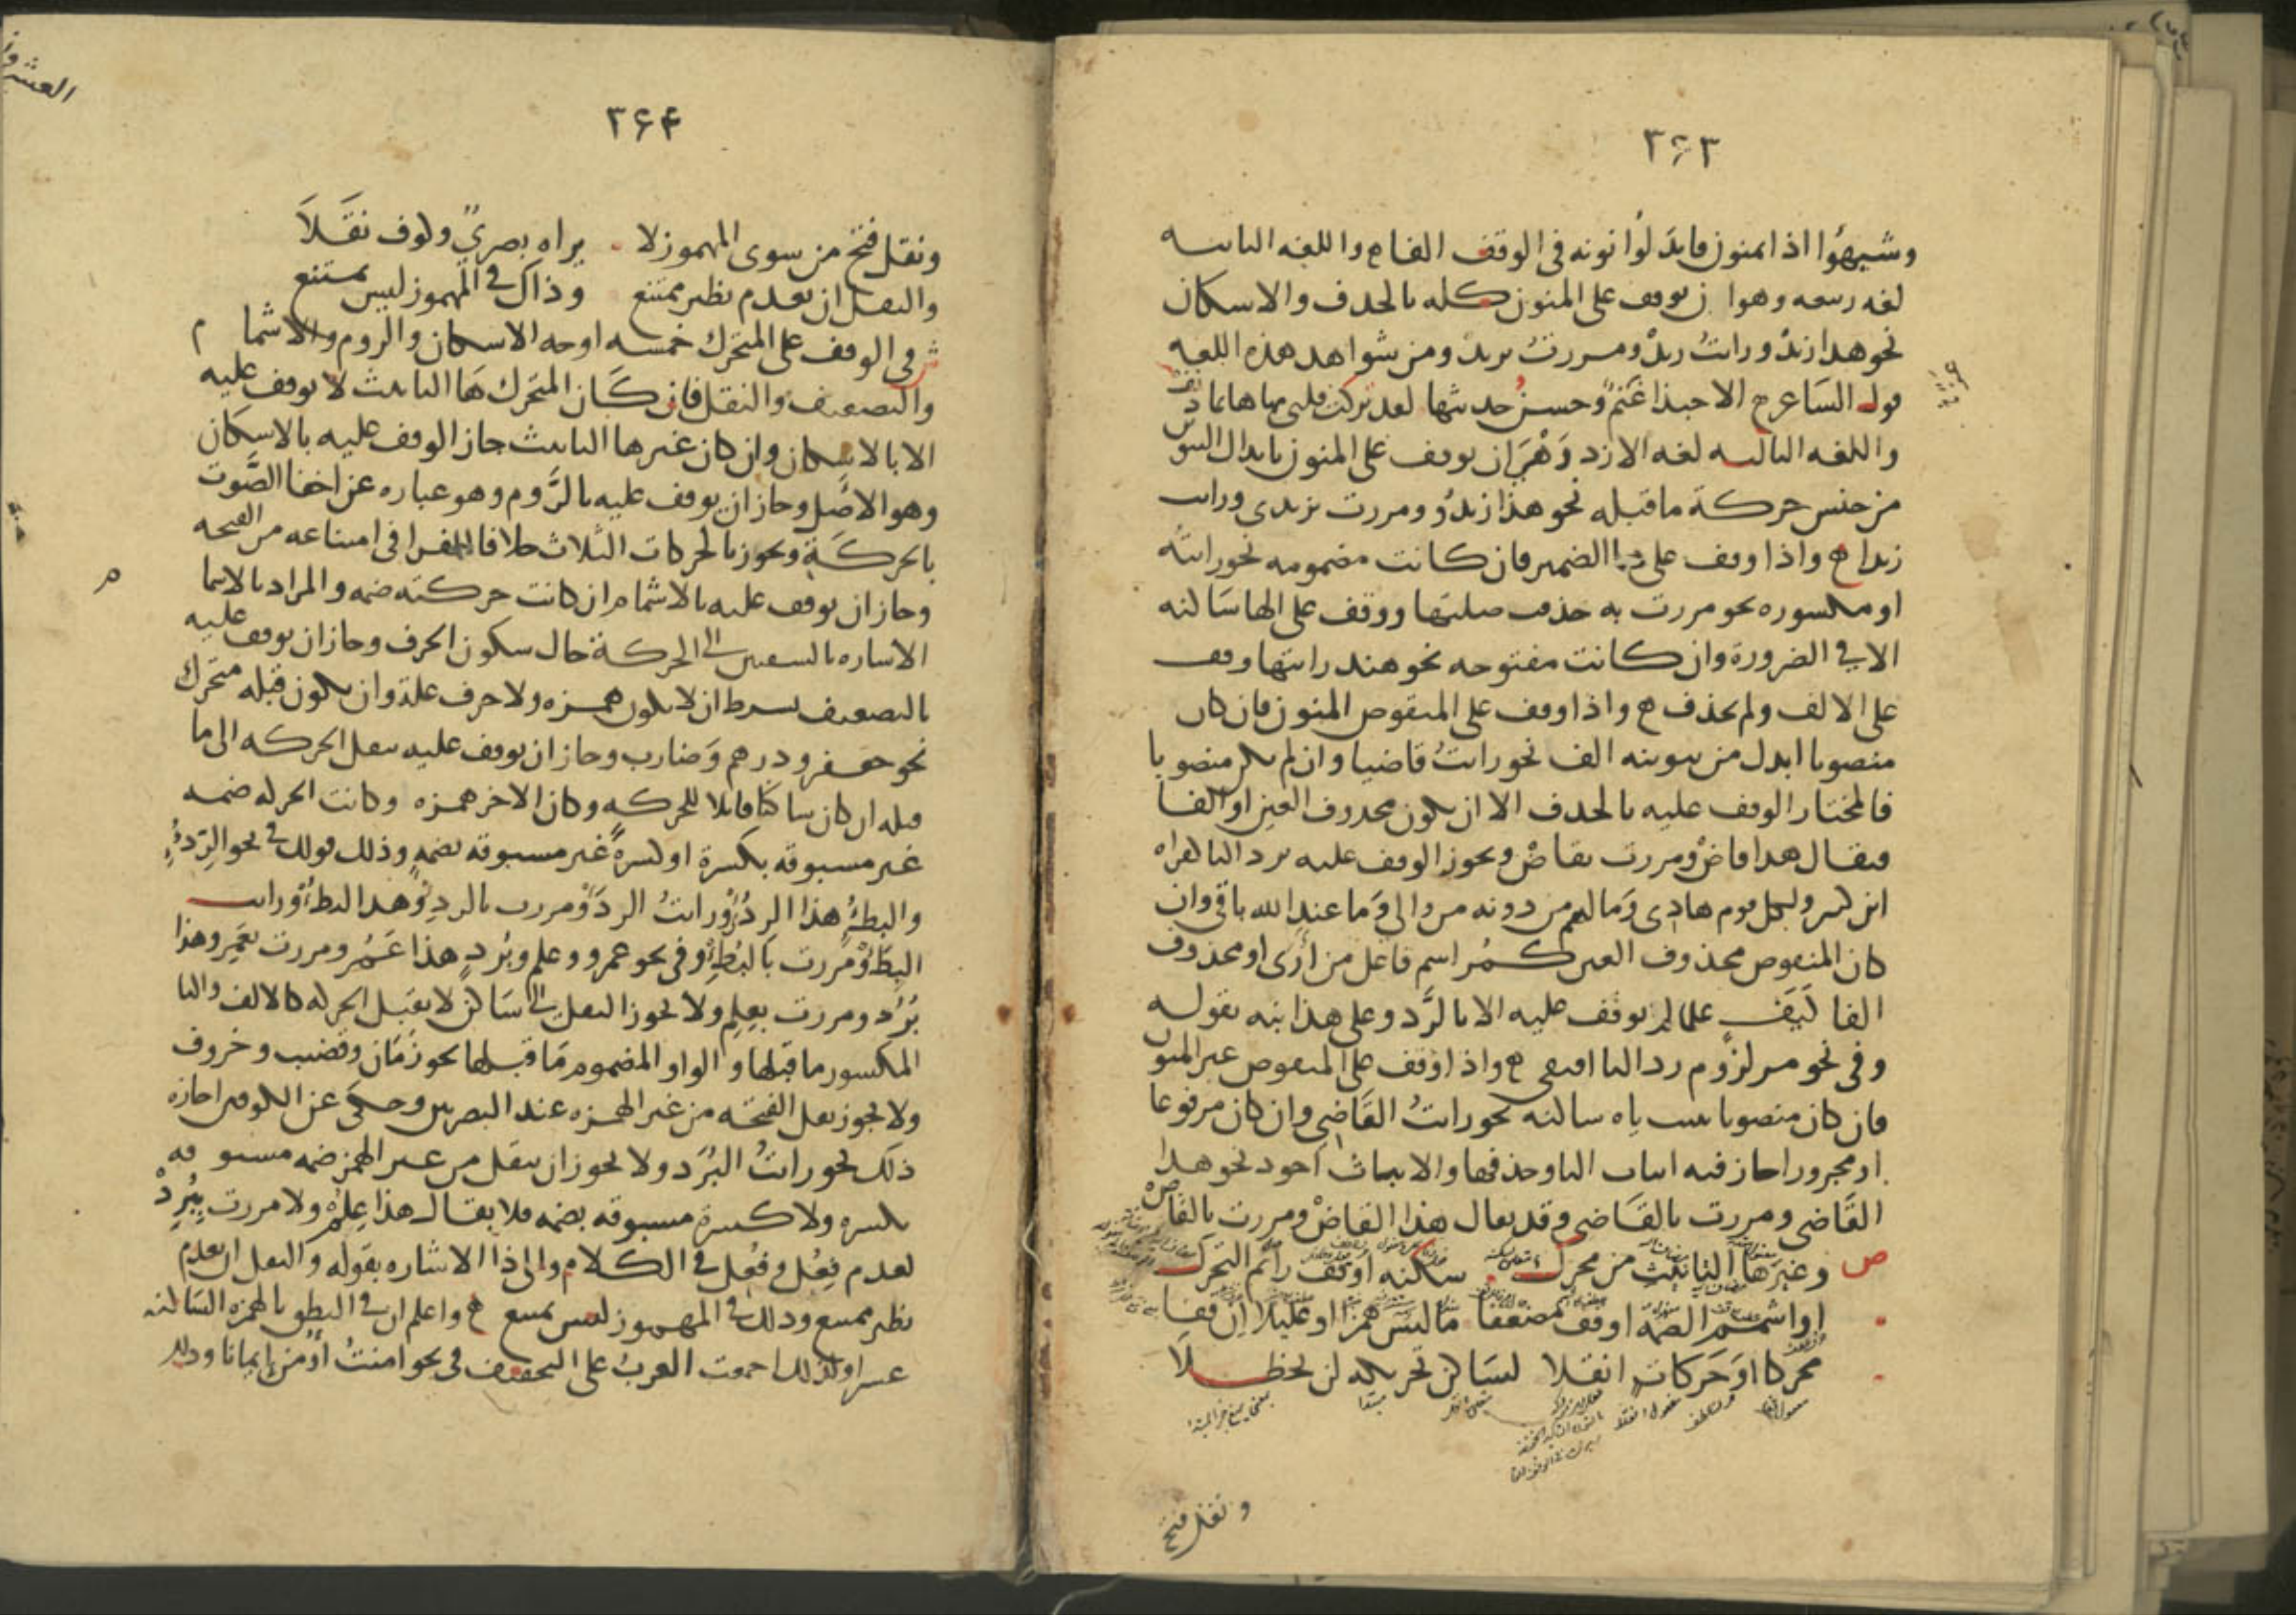 ٣٦٣
وشبهوا اذا بمنون فابدلوا نونه في الوقف الفا ح واللغه الثانيه
لغه ربيعه وهو ان يوقف على المنون كله بالحذف والاسكان
نحو هذا زيدْ ورايتُ زيدْ ومررتُ بزيدْ ومن شواهد هذه اللغه
قول الشاعر ح الا حبذا غنمٌ وحسنُ حديثها لقد تركت قلبي بها هائما دنف
واللغه الثالثه لغه الازد وَهْيَ ان يوقف على المنون بابدال التنوين
من جنس حركة ما قبله نحو هذا زيدُو ومررت بزيدي ورايت
زيدا ح واذا وقف على ها الضمير فان كانت مضمومه نحو رايتُه
او مكسوره نحو مررت به حذف صلتها ووقف على الها ساكنه
الا في الضرورة وان كانت مفتوحه نحو هند رايتها وقف
على الالف ولم يحذف ح واذا وقف على المنقوص المنون فان كان
منصوبا ابدل من تنوينه الف نحو رايتُ قاضيا وان لم يكن منصوبا
فالمختار الوقف عليه بالحذف الا ان يكون محذوف العين او الفا
فيقال هذا قاضْ ومررت بقاضْ ويجوز الوقف عليه برد اليا كقراه
ابن كثير ولكل قوم هادي وَمالهم من دونه من والي وَما عند الله باقي وان
كان المنقوص محذوف العين كمُر اسم فاعل من أرَى او محذوف
الفا كَيَفِ علما لم يوقف عليه الا بالرَّد وعلى هذا نبه بقوله
وفي نحو مر لزوم رد اليا اقتفي ح واذا وقف على المنقوص غير المنون
فان كان منصوبا ثبتت ياه ساكنه نحو رايتُ القَاضي وان كان مرفوعا
او مجرورا جاز فيه اثبات اليا وحذفها والاثبات اجود نحو هذا
القَاضي ومررت بالقَاضي وقد يقال هذا القاضْ ومررت بالقاضْ
ص وغيرَ ها التانيث من محرك سكنه او قف رائم التحرك
او اشمم الضمّة او قف مضعفا ما ليسَ همزا او عليلا اِن قفا
محركا او حَركاتٍ انقلا لسَاكن تحريكه لن يحظلا
ونقل فتح
٣٦٤
ونقل فتح من سوى المهموز لا يراه بصريٌّ وكوف نقَلاَ
والنقل ان يعدم نظير ممتنع وذاك في المهموز ليس يمتنع
ش في الوقف على المتحرك خمسه اوجه الاسكان والروم والاشما م
والتضعيف والنقل فان كَان المتحرك هَا التانيث لا يوقف عليه
الا بالاسكان وان كان غيرها التانيث جاز الوقف عليه بالاسكان
وهو الاصْل وجاز ان يوقف عليه بالرَّوم وهو عباره عن اخفا الصَّوت
بالحركَةِ ويجوز بالحركات الثلاث خلافا للفرا في امتناعه من الفتحه
وجاز ان يوقف عليه بالاشمام ان كانت حركته ضمه والمراد بالاشما م
الاشاره بالشفتين الى الحركة حال سكون الحرف وجاز ان يوقف عليه
بالتضعيف بشرط ان لا يكون همزه ولا حرف علة وان يكون قبله متحرك
نحو جعفر ودرهم وَضارب وجاز ان يوقف عليه بنقل الحركه الى ما
قبله ان كان ساكنًا قابلا للحركه وكان الاخر همزه وكانت الحركه ضمه
غير مسبوقه بكسرة او كسرةً غير مسبوقه بضمةٍ وذلك قولك في نحو الرِّدءِ
والبطءِ هذا الرِدُءْ ورايتُ الردَءْ ومررت بالردِءْ وهذا البطُءْ ورايت
البطَءْ ومررت بالبُطِءْ وفي نحو عمرو وعلم وبُردٍ هذا عَمُر ومررت بعَمِر وهذا
بُرُد ومررت بعِلِم ولا يجوز النقل الى سَاكن لا يقبل الحركه كالالف واليا
المكسور ما قبلها والواو المضموم مَا قبلها نحو زمَان وقضيب وخروف
ولا يجوز نقل الفتحَه من غير الهمزه عند البصريين وحكى عن الكوفيين اجازه
ذلك نحو رايتُ البُرَد ولا يجوز ان ينقل من غير الهمز ضمه مسبو قه
بكسره ولا كسرة مسبوقه بضمه فلا يقال هذا عِلُم ولا مررت ببُرِدْ
لعدم فِعُل وفُعِل في الكلام والى ذا الاشاره بقوله والنقل ان يعدم
نظير ممتنع وذلك في المهموز ليس يمتنع ح واعلم ان في النطق بالهمزه السَاكنه
عسرا ولذلك اجمعت العربُ على التخفيف في نحو امنتُ اُومن اِيمانا وذلك